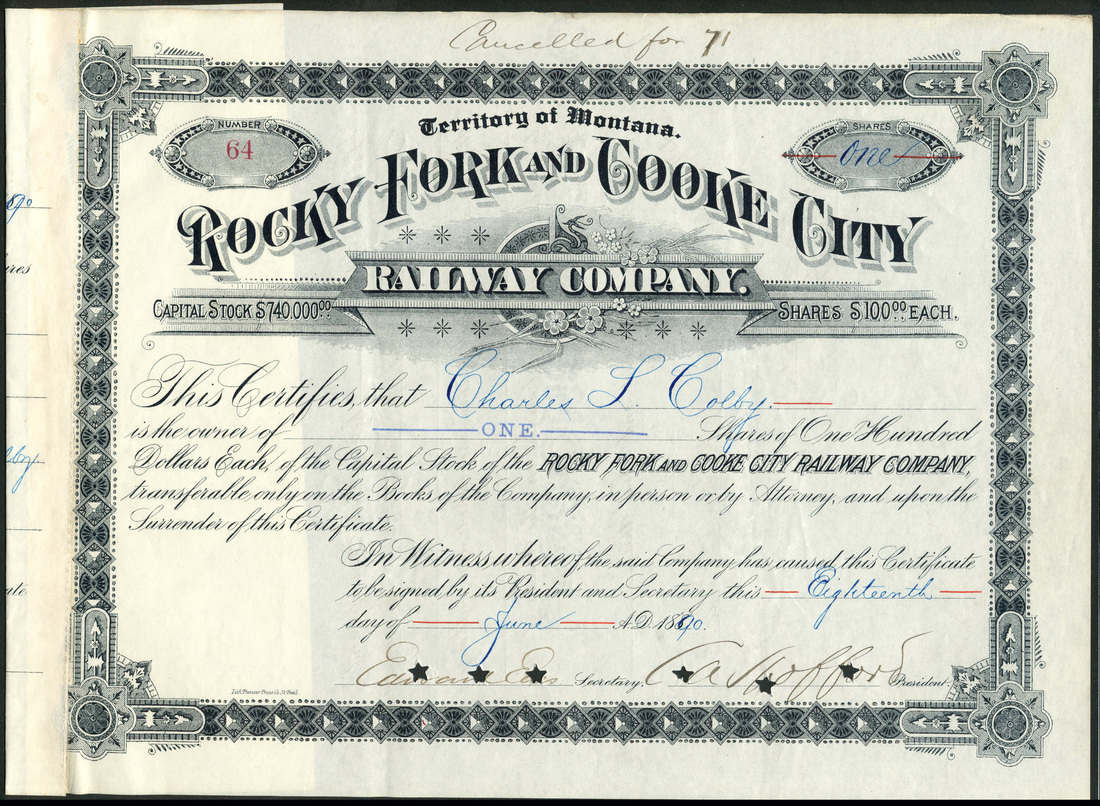 Cancelled for 71
NUMBER
64
Territory of Montana.
SHARES
One
ROCKY FORK AND COOKE CITY
RAILWAY COMPANY.
CAPITAL STOCK $740.000.00
SHARES $100.00 EACH.
This Certifies, that Charles L. Colby.
is the owner of ONE. Shares of One Hundred
Dollars Each, of the Capital Stock of the ROCKY FORK AND COOKE CITY RAILWAY COMPANY,
transferable only on the Books of the Company, in person or by Attorney, and upon the
Surrender of this Certificate.
In Witness whereof the said Company has caused this Certificate
to be signed by its President and Secretary this Eighteenth
day of June A.D. 1890.
Secretary. President.
Lith. Pioneer Press Co. St. Paul.